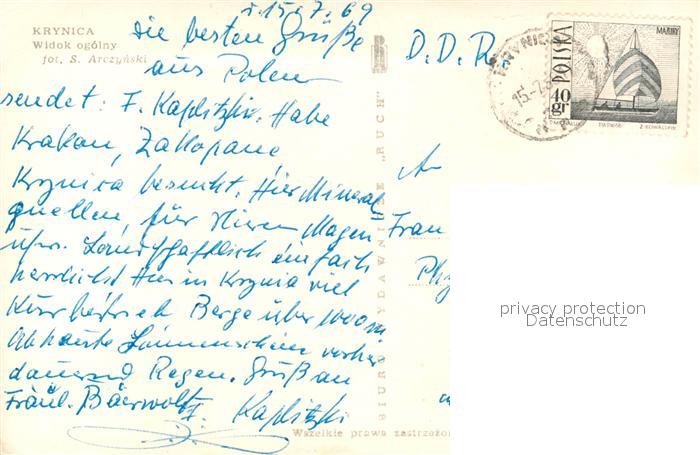 KRYNICA
Widok ogólny
fot. S. Arczyński
15.7.69
Die besten Grüße
aus Polen
sendet: F. Kaplitzki. Habe
Krakau, Zakopane
Krynica besucht. Hier Mineral=
quellen, für Nieren Magen
usw. Landschaftlich einfach
herrlich! Hier in Krynica viel
Kurbetrieb Berge über 1000 m
Ab heute Sonnenschein vorher
dauernd Regen. Gruß an
Fräul. Bäerwoltz
F. Kaplitzki
BIURO WYDAWNICZE "RUCH"
Wszelkie prawa zastrzeżo
D.D.R.
KRYNICA
15.-7.
POLSKA
40 gr
MAZURY
An
Frau
privacy protection
Datenschutz